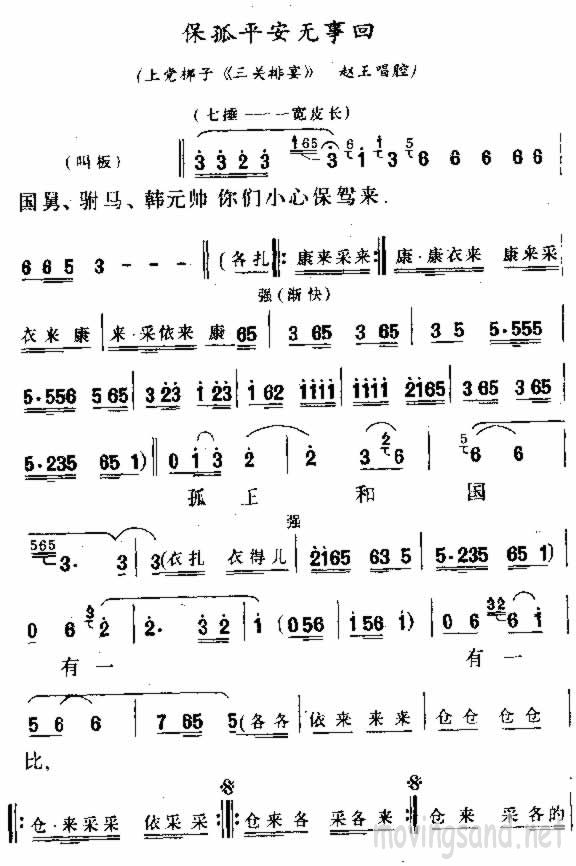 保孤平安无事回
(上党梆子《三关排宴》 赵王唱腔)
(七捶——宽皮长)
(叫板) 3 3 2 3 165 3 6 1 3 5 6 6 6 66
国舅、驸马、韩元帅 你们小心保驾来.
6 6 5 3 - - - (各扎 康来采来 康·康衣来 康来采
强(渐快)
衣来康 来·采依来康65 3 65 3 65 3 5 5·555
5·556 5 65 3 23 1 23 1 62 1111 1111 2165 3 65 3 65
5·235 65 1) 0 1 3 2 2 3 2 6 5 6 6
孤 王 和 国
强
565 3· 3 3(衣扎 衣得儿 2165 63 5 5·235 65 1)
0 6 3 2 2· 3 2 1 (056 1·56 1) 0 6 32 6 1
有一 有一
5 6 6 7 65 5(各各 依来 来来 仓仓 仓仓
比,
仓·来采采 依采采 仓来各 采各来 仓来 采各的
movingsand.net